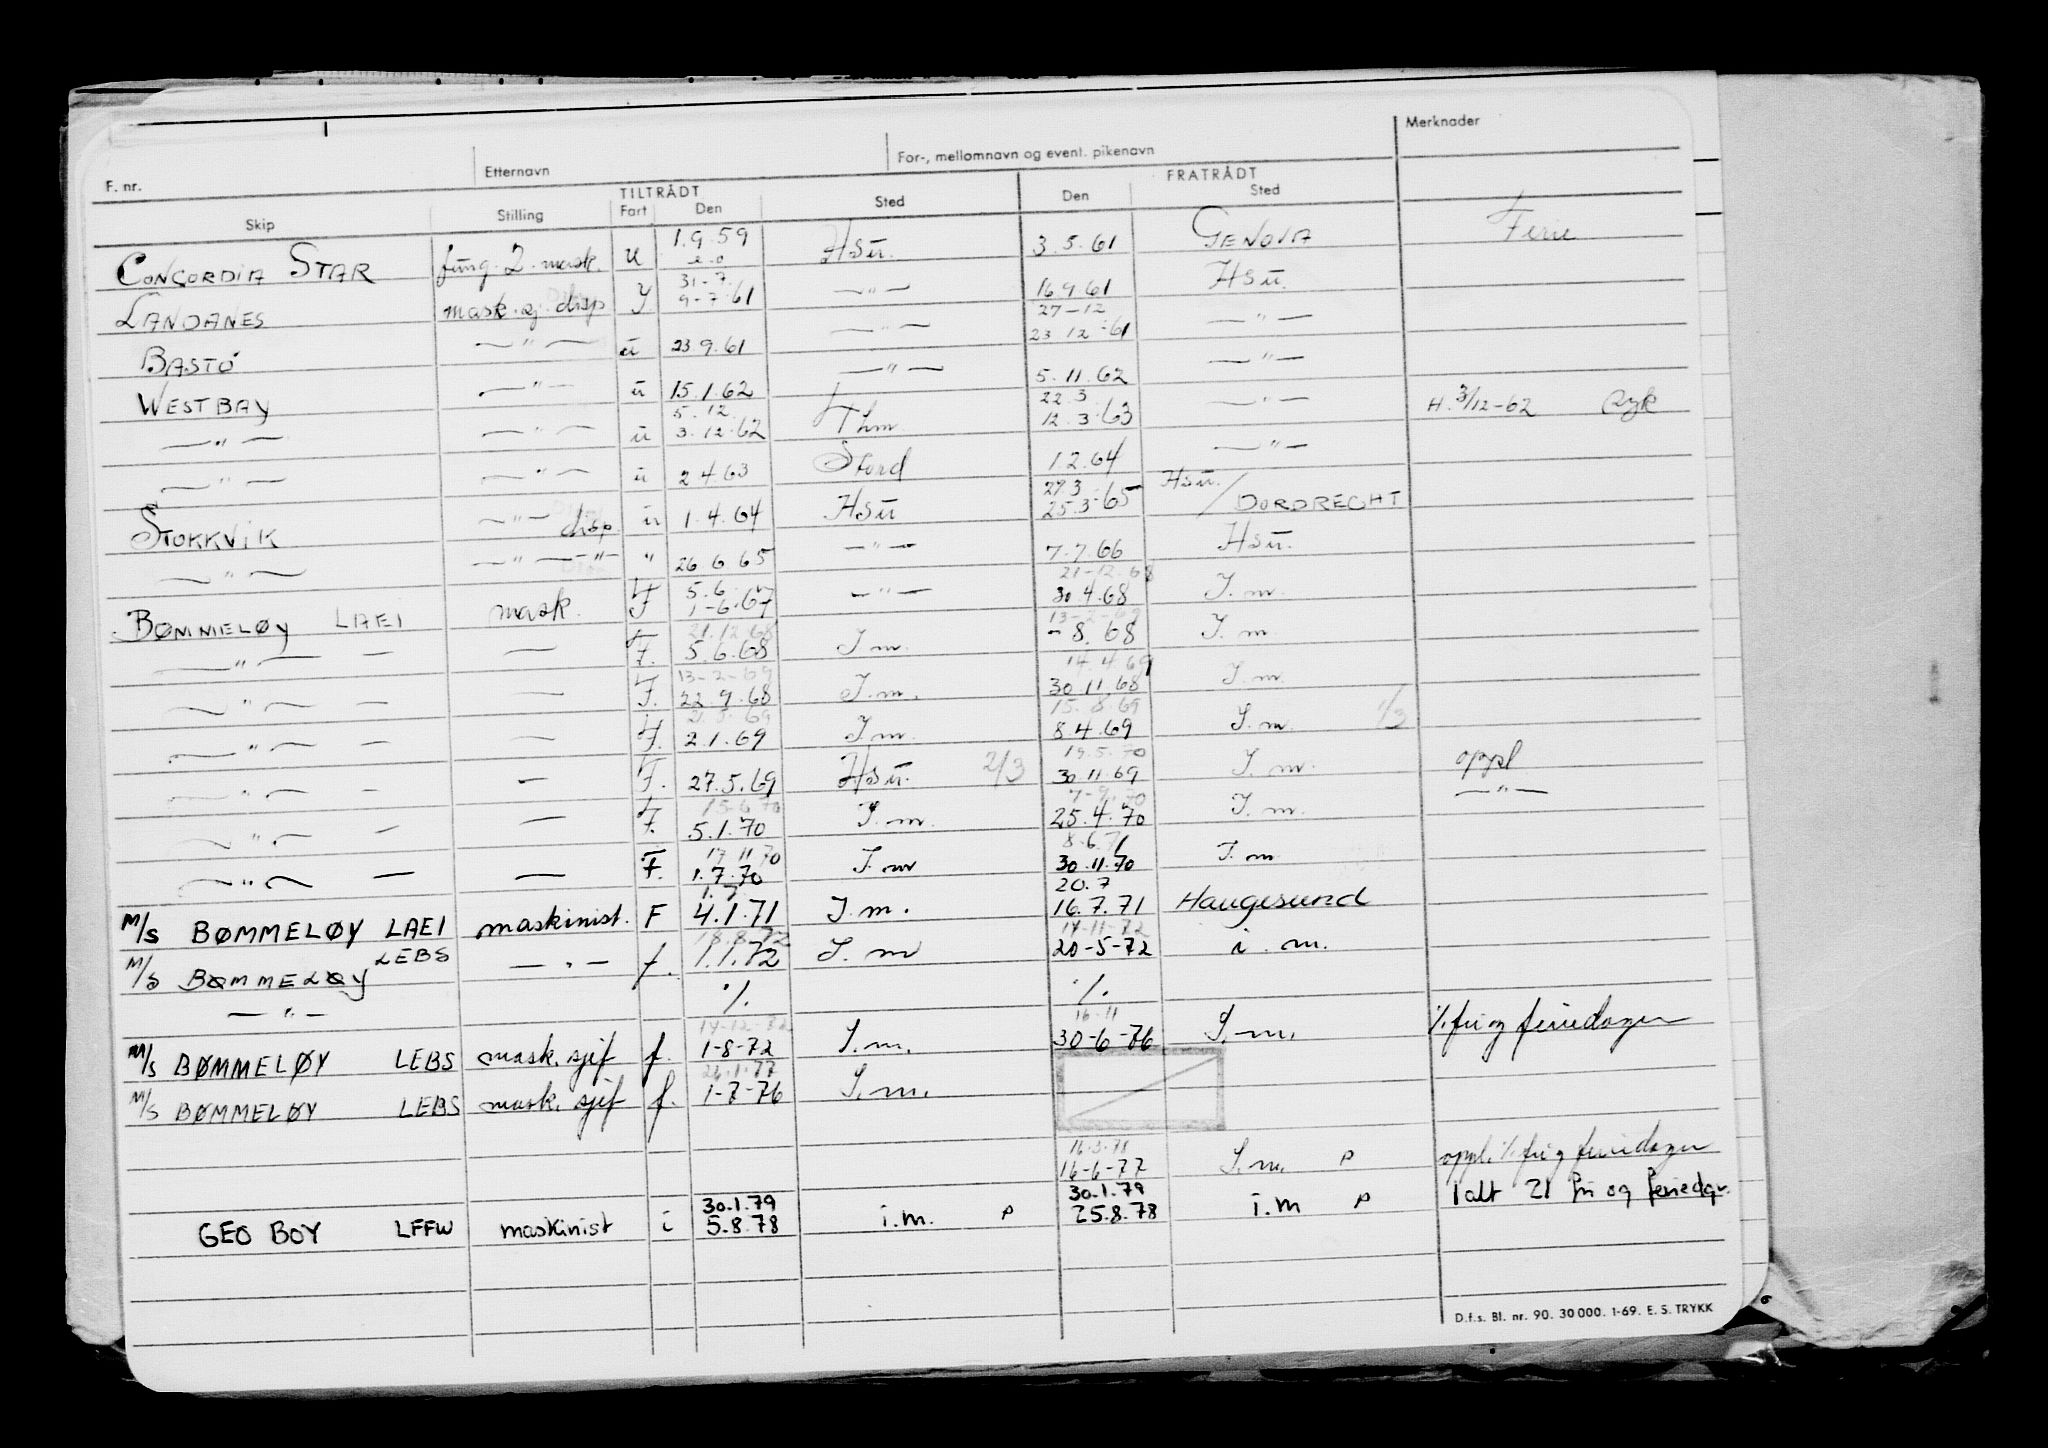 Merknader
F. nr. Etternavn For-, mellomnavn og event. pikenavn
TILTRÅDT FRATRÅDT
Skip Stilling Fart Den Sted Den Sted
CONCORDIA STAR fung. 2. mask. U 1.9.59 Hsu. 3.5.61 GENOVA Ferie
31-7.
LANDANES mask. sj. disp J. 9-7-61 —"— 16.9.61 Hsu.
27-12
BASTØ —"— u 23.9.61 —"— 23.12.61 —"—
WESTBAY —"— u 15.1.62 —"— 5.11.62 —"—
5.12. 22.3
—"— —"— u 3.12.62 Thm. 12.3.63 —"— H. 3/12-62 syk
—"— —"— u 2.4.63 Stord 1.2.64 —"—
27.3 Hsu.
STOKKVIK —"— disp. u 1.4.64 Hsu 25.3-65 / DORDRECHT
—"— —"— —"— " 26.6.65 —"— 7.7.66 Hsu.
F 5.6. 21-12.68
BØMMELØY LAEI mask. F 1-6.67 —"— 30.4.68 I.m.
F 21.12.68 13-2-69
—"— — — F. 5.6.68 I.m. -8.68 I.m.
F 13-2-69 14.4.69
—"— — — F. 22.9.68 I.m. 30.11.68 I.m.
F 15.8.69
—"— — — F. 2.1.69 I.m. 8.4.69 I.m. 1/3
F 19.5.70
—"— — — F. 27.5.69 Hsu. 2/3 30.11.69 I.m. oppl
F 15-6.70 7-9.70
—"— — — F. 5.1.70 I.m. 25.4.70 I.m. —"—
F 17.11.70 8.6.71
—"— — — F. 1.7.70 I.m 30.11.70 I.m.
1.7. 20.7
M/S BØMMELØY LAEI maskinist. F 4.1.71 I.m. 16.7.71 Haugesund
LEBS 18.8.72 17-11-72
M/S BØMMELØY —"— f. 1.1.72 I.m 20-5-72 i.m.
—"— ·/. ·/.
14-12-72 16-11
M/S BØMMELØY LEBS mask.sjef f. 1-8-72 I.m. 30-6-76 I.m. ·/. fri og feriedager
24.1.77
M/S BØMMELØY LEBS mask.sjef f. 1-7-76 I.m.
16.3.78
16-6-77 I.m. P oppl. ·/. fri og feriedager
30.1.79 30.1.79
GEO BOY LFFW maskinist i 5.8.78 i.m. P 25.8.78 i.m P Ialt 21 fri og feriedgr.
D.f.s. Bl. nr. 90. 30 000. 1-69. E. S. TRYKK